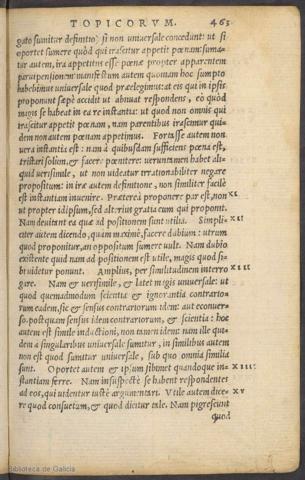 TOPICORVM. 463
gato sumitur definitio; si non universale concedunt: ut si
oportet sumere quòd qui irascitur appetit pœnam: suma-
tur autem, ira appetitus esse pœnæ propter apparentem
parvipensionem: manifestum autem quoniam hoc sumpto
habebimus universale quod præelegimus: at eis qui in ipsis
proponunt sæpè accidit ut abnuat respondens, eò quòd
magis se habeat in ea re instantia: ut quod non omnis qui
irascitur appetit pœnam, nam parentibus irascimur qui-
dem non autem pœnam appetimus. Fortasse autem non
vera instantia est: nam à quibusdam sufficiens pœna est,
tristari solùm, & facere pœnitere: veruntamen habet ali-
quid verisimile, ut non videatur irrationabiliter negare
propositum: in iræ autem definitione, non similiter facilè
est instantiam invenire. Præterea proponere par est, non XI
ut propter idipsum, sed alterius gratia cum qui proponit.
Nam devitant ea quæ ad positionem sunt utilia. Simpli- XII
citer autem dicendo, quàm maximè, facere dubium: utrum
quod proponitur, an oppositum sumere vult. Nam dubio
existente quid nam ad positionem est utile, magis quod si-
bi videtur ponunt. Amplius, per similitudinem interro XIII
gare. Nam & verisimile, & latet magis universale: ut
quod quemadmodum scientia & ignorantia contrario-
rum eadem, sic & sensus contrariorum idem: aut econver-
so. postquam sensus idem contrariorum, & scientia: hoc
autem est simile inductioni, non tamen idem: nam ille qui-
dem à singularibus universale sumitur, in similibus autem
non est quod sumitur universale, sub quo omnia similia
sunt. Oportet autem & ipsum sibimet quandoque in- XIIII
stantiam ferre. Nam insuspectè se habent respondentes
ad eos, qui videntur iustè argumentari. Vtile autem dice- XV
re quod consuetum, & quod dicitur tale. Nam pigrescunt
quod
Biblioteca de Galicia